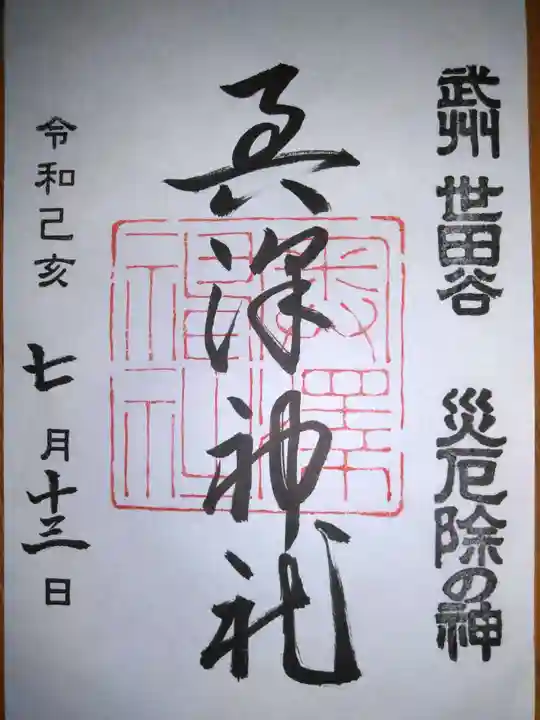 武州 世田谷 災厄除の神
奥澤神社
奥澤
神社
令和己亥 七月十三日